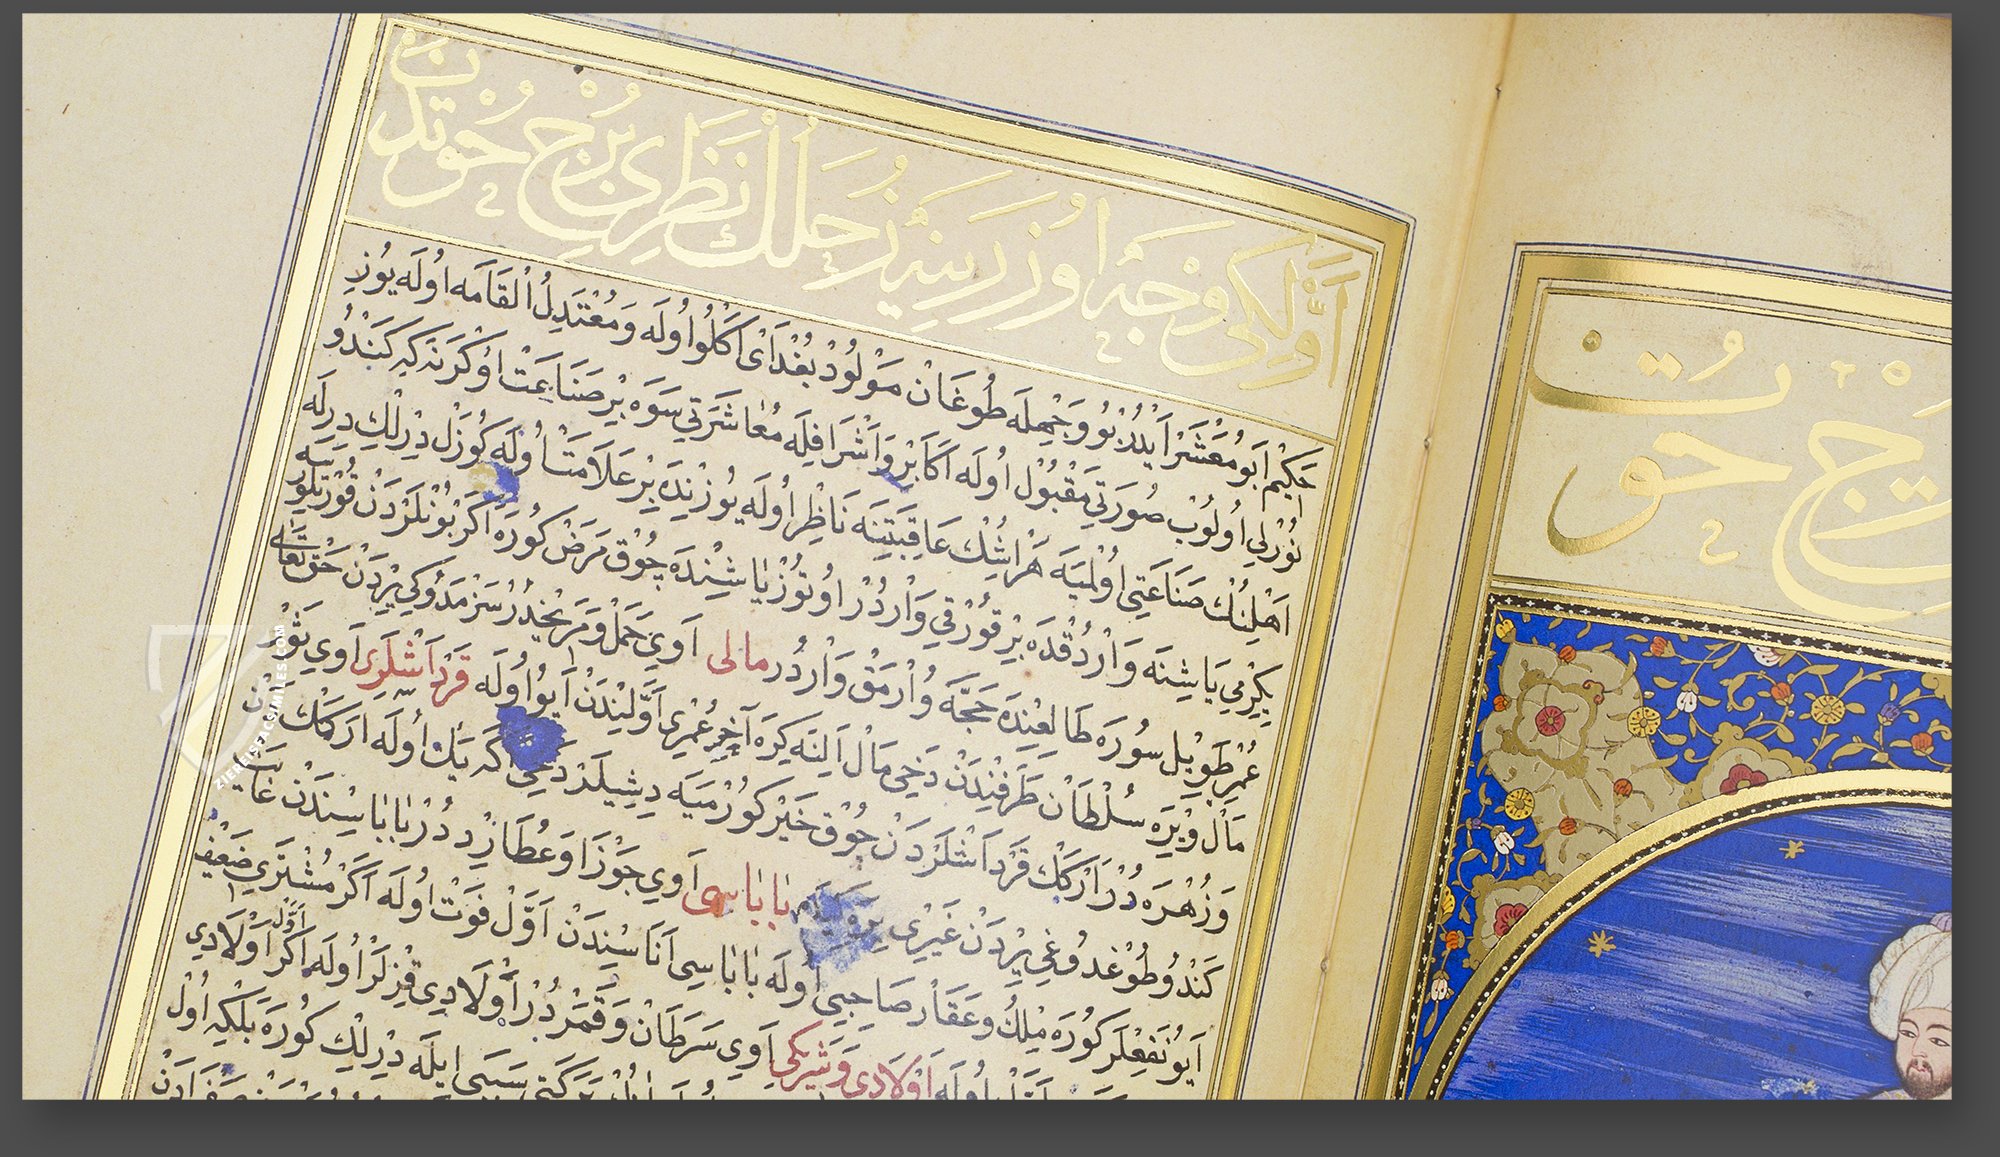 اَوَّلْكِی وَجْهُ اوُزَرَ نَیّرِ زُحَلْكْ نَظَرِی بُرْجِ حُوتْدَنْ
حَكِیْمْ اَبُو مَعْشَرْ اَیْدُرْ بُو وَجْهِلَه طُوغَانْ مَوْلُودْ بُغْدَاىْ اَكْلُو اُولَه وَمُعْتَدِلُ الْقَامَه اُولَه یُوزِ
نُورْلِی اُولُوبْ صُورَتِی مَقْبُولْ اُولَه اَكَابِرْ وَاَشْرَافِلَه مُعَاشَرَتِی سَوَه بِرْ صَنَاعَتْ اُوكْرَنَه كِه كَنْدُو
اَهْلِنُكْ صَنَاعَتِی اُولْمَیَه هَرْ اِشِكْ عَاقِبَتِنَه نَاظِرْ اُولَه یُوزِنْدَه بِرْ عَلَامَتْ اُولَه كُوزَلْ دِرْلِكْ دِرِلَه
یِكِرْمِی یَاشِنَه وَارْدُقْدَه بِرْ قُورْقِی وَارْدُرْ اُوتُوزْ یَاشِنْدَه چُوقْ مَرَضْ كُورَه اَكَرْ بُونْلَرْدَنْ قُورْتِلُورْسَه
عُمْرِ طَوِیْلْ سُورَه طَالِعِنْدَه حَجَّه وُارْمَقْ وَارْدُرْ مالی اَوِی حَمَلْ وَمَرِّیخْدُرْ سَزْمَدُوكِی یِرْدَنْ حَقْ تَعَالَى
مَالْ وِیْرَه سُلْطَانْ طَرَفِنْدَنْ دَخِی مَالْ اَلِنَه كِرَه آخِرِ عُمْرِی اَوَّلِنْدَنْ اَیُو اُولَه قَرْدَاشْلَرِی اَوِی ثَوْرْ
وَزُهْرَه دُرْ اَرْكَكْ قَرْدَاشْلَرْدَنْ چُوقْ خَیْرْ كُورْمَیَه دِشِیلَرْ دَخِی كَه یَكْ اُولَه اَرْكَكْدَنْ
كَنْدُو طُوغْدُوغِی یِرْدَنْ غَیْرِی یِرْدَه بَاباسی اَوِی جَوْزَا وَعُطَارِدْ دُرْ بَابَاسِنْدَنْ غَایَتْ
اَیُو نَفْعِلَرْ كُورَه مِلْكْ وَعَقَارْ صَاحِبِی اُولَه بَابَاسِی اَنَاسِنْدَنْ اَوَّلْ فَوْتْ اُولَه اَكَرْ مُشْتَرِی ضَعِیفْ
اُولَه اَوْلَادِی وَشَرِیكِی اَوِی سَرَطَانْ وَقَمَرْ دُرْ اَوَّلْ اَوْلَادِی قِزلَرْ اُولَه اَكَرْ اَوَّلْ اَوْلَادِی
سَبَبِی ایلَه دِرْلِكْ كُورَه بَلْكِه اُولْ
بُرْجِ حُوتْ
ZIEREIS FACSIMILES.COM